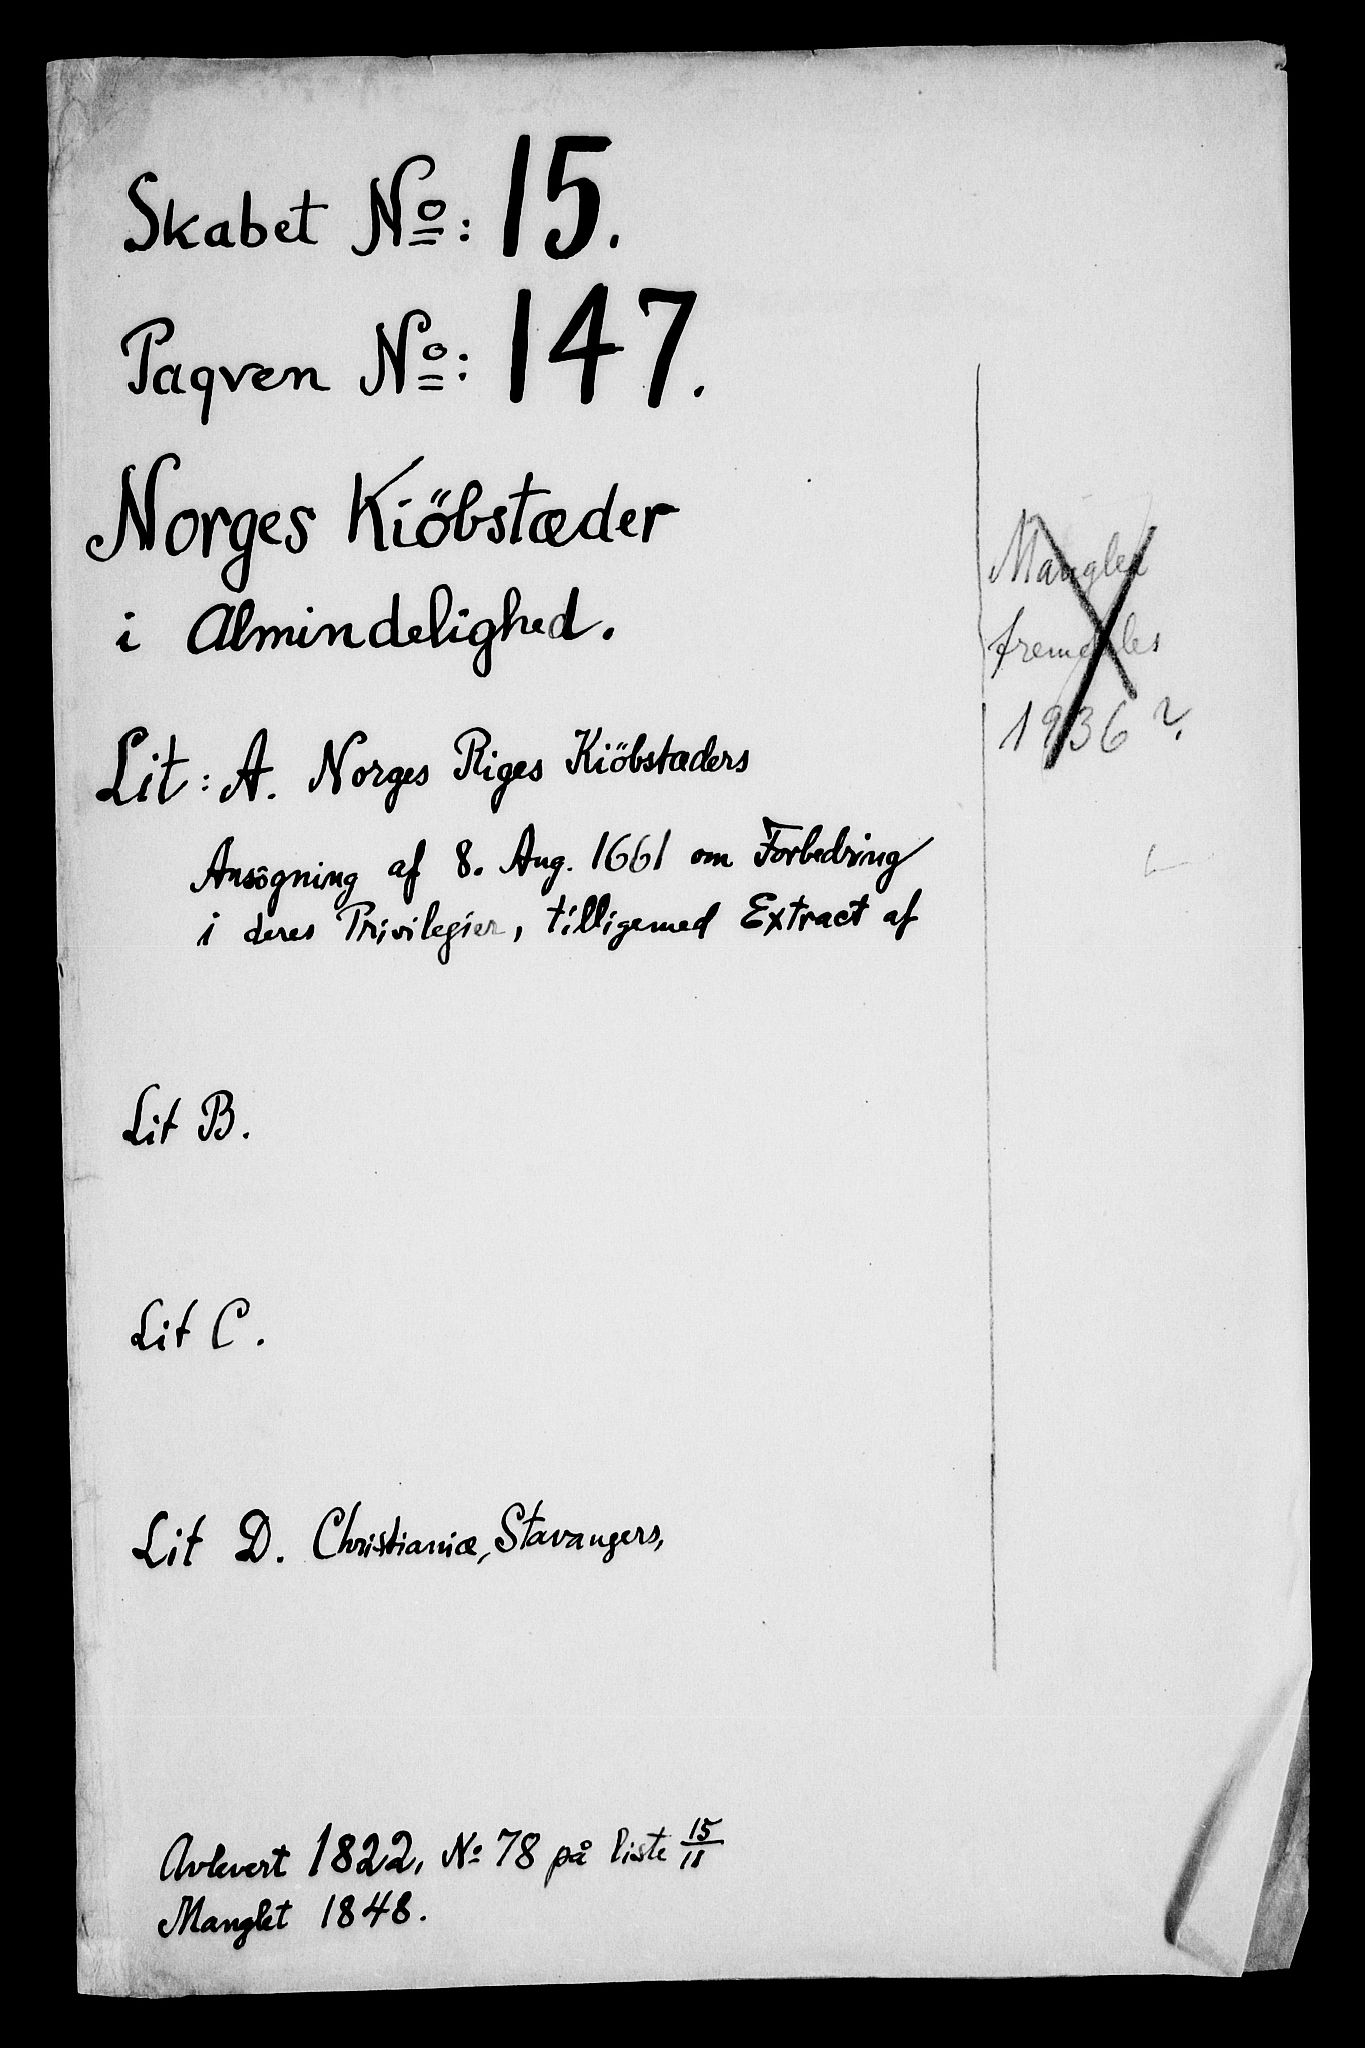 Skabet No: 15.
Paqven No: 147.
Norges Kiöbstæder
i Almindelighed.
Mangler
fremdeles
1936?
Lit: A. Norges Riges Kiöbstæders
Ansögning af 8. Aug. 1661 om Forbedring
i deres Privilegier, tilligemed Extract af
Lit B.
Lit C.
Lit D. Christianiæ, Stavangers,
Avlevert 1822, No 78 på liste 15/11
Manglet 1848.